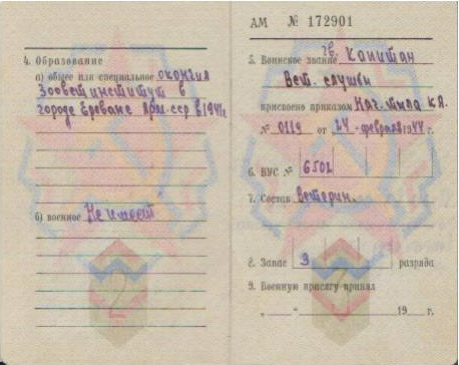 4. Образование
а) общее или специальное окончил
Зооветинститут в
городе Ереване Арм-сср в 1941г
б) военное Не имеет
АМ № 172901
5. Воинское звание гв. Капитан
Вет. службы
присвоено приказом Нач. тыла КА.
№ 0119 от 24 - февраля 1944 г.
6. ВУС № 6502
7. Состав Ветерин.
8. Запас 3 разряда
9. Военную присягу принял
„ “ 19 г.